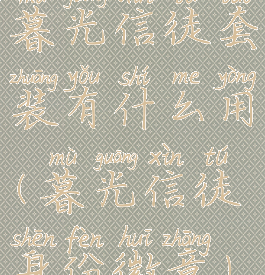 暮光信徒套
zhuāng yǒu shí me yòng
装有什么用
mù guāng xìn tú
（暮光信徒
shēn fèn huī zhāng
身份徽章）